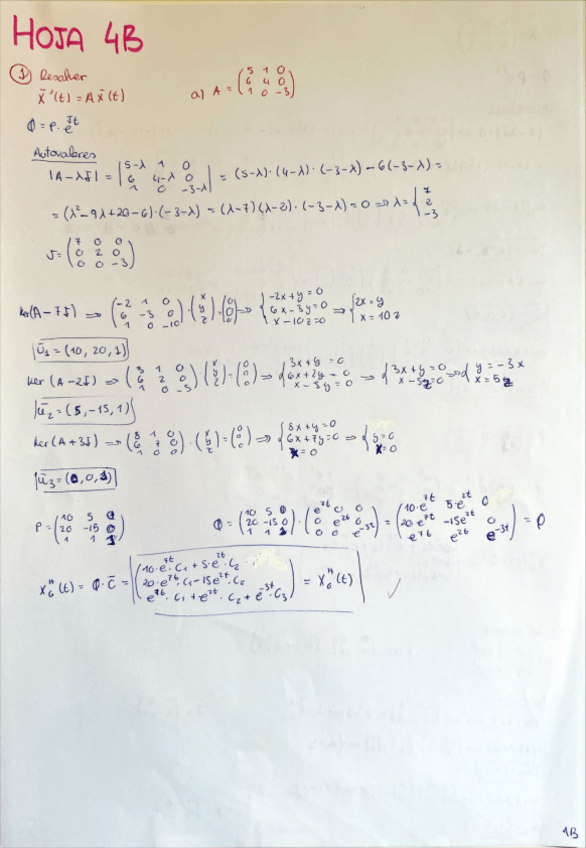 HOJA 4B
① Resolver
X̄'(t) = A X̄(t)    a) A = (5 1 0; 6 4 0; 1 0 -3)
Φ = P · e^{Jt}
Autovalores
|A - λI| = |5-λ 1 0; 6 4-λ 0; 1 0 -3-λ| = (5-λ)·(4-λ)·(-3-λ) - 6(-3-λ) =
= (λ² - 9λ + 20 - 6)·(-3-λ) = (λ-7)(λ-2)·(-3-λ) = 0 ⇒ λ = {7; 2; -3
J = (7 0 0; 0 2 0; 0 0 -3)
Ker(A - 7I) ⇒ (-2 1 0; 6 -3 0; 1 0 -10) · (x; y; z) = (0; 0; 0) ⇒ {-2x + y = 0; 6x - 3y = 0; x - 10z = 0 ⇒ {2x = y; x = 10z
ū₁ = (10, 20, 1)
Ker(A - 2I) ⇒ (3 1 0; 6 2 0; 1 0 -5) · (x; y; z) = (0; 0; 0) ⇒ {3x + y = 0; 6x + 2y = 0; x - 5y = 0 ⇒ {3x + y = 0; x - 5z = 0 ⇒ {y = -3x; x = 5z
ū₂ = (5, -15, 1)
Ker(A + 3I) ⇒ (8 1 0; 6 7 0; 1 0 0) · (x; y; z) = (0; 0; 0) ⇒ {8x + y = 0; 6x + 7y = 0; x = 0 ⇒ {y = 0; x = 0
ū₃ = (0, 0, 1)
P = (10 5 0; 20 -15 0; 1 1 1)    Φ = (10 5 0; 20 -15 0; 1 1 1) · (e^{7t} 0 0; 0 e^{2t} 0; 0 0 e^{-3t}) = (10·e^{7t} 5·e^{2t} 0; 20·e^{7t} -15e^{2t} 0; e^{7t} e^{2t} e^{-3t}) = Φ
X_G^H(t) = Φ · C̄ = (10·e^{7t}·C₁ + 5·e^{2t}·C₂; 20·e^{7t}·C₁ - 15e^{2t}·C₂; e^{7t}·C₁ + e^{2t}·C₂ + e^{-3t}·C₃) = X_G^H(t) ✓
1B